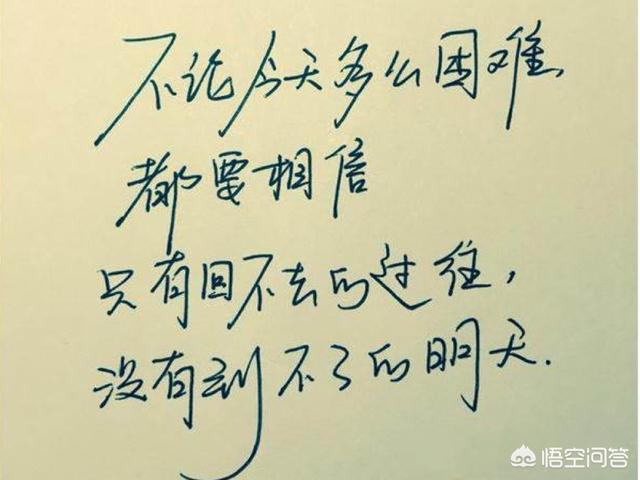 不论今天多么困难，
都要相信
只有回不去的过往，
没有到不了的明天.
悟空问答